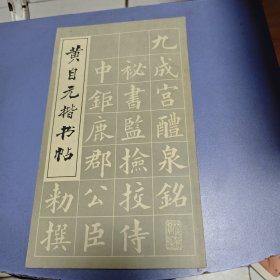 黄自元楷书帖
九成宫醴泉銘
祕書監撿挍侍
中鉅鹿郡公臣
勅撰